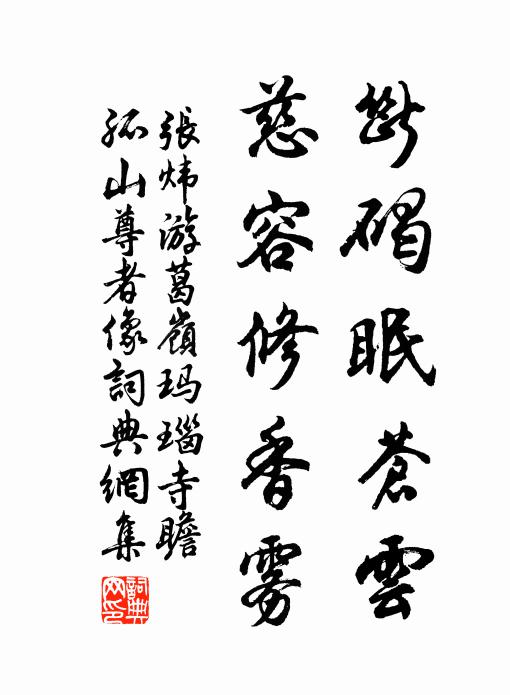 斷碣眠蒼雲
慈容修香霧
張炜游葛嶺玛瑙寺瞻
孤山尊者像詞典網集